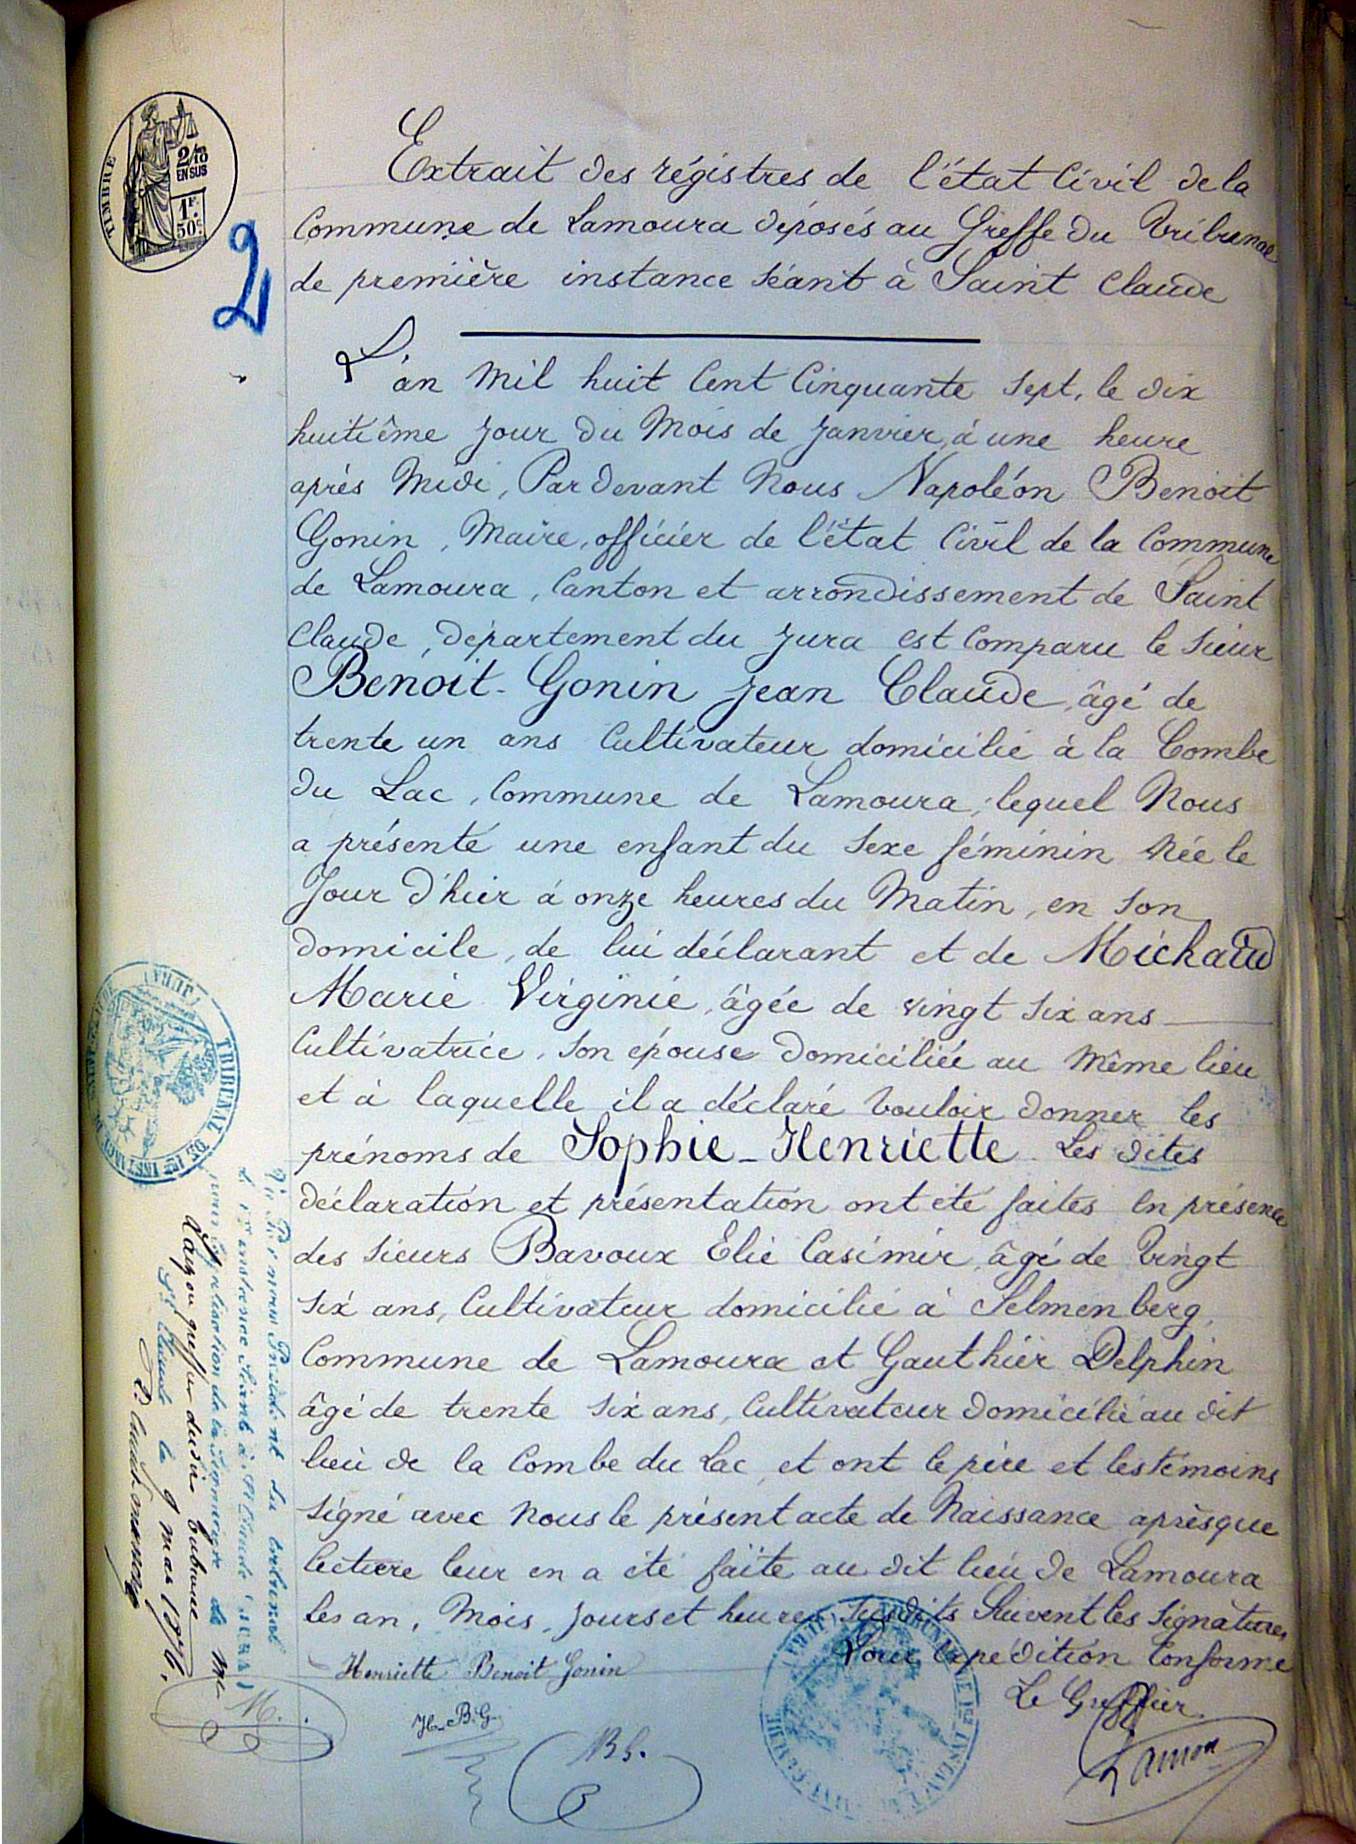 TIMBRE
2/10
EN SUS
1F.
50c.
2
Extrait des régistres de l'état Civil de la
Commune de Lamoura déposés au Greffe du Tribunal
de première instance séant à Saint Claude
L'an mil huit Cent Cinquante sept, le dix
huitième jour du Mois de Janvier, à une heure
après Midi, Par devant Nous Napoléon Benoit
Gonin, Maire, officier de l'état Civil de la Commune
de Lamoura, Canton et arrondissement de Saint
Claude, département du Jura est Comparu le sieur
Benoit-Gonin Jean Claude, âgé de
trente un ans Cultivateur domicilié à la Combe
du Lac, Commune de Lamoura, lequel Nous
a présenté une enfant du Sexe féminin Née le
Jour d'hier à onze heures du Matin, en son
domicile, de lui déclarant et de Michaud
Marie Virginie, âgée de vingt six ans
Cultivatrice, son épouse domiciliée au Même lieu
et à laquelle il a déclaré Vouloir donner les
prénoms de Sophie-Henriette. Les dites
déclaration et présentation ont été faites en présence
des sieurs Bavoux Elie Casimir, âgé de Vingt
six ans, Cultivateur domicilié à Selmenberg,
Commune de Lamoura et Gauthier Delphin
âgé de trente six ans, Cultivateur domicilié au dit
lieu de la Combe du Lac, et ont le père et les témoins
signé avec Nous le présent acte de Naissance après que
lecture leur en a été faite au dit lieu de Lamoura
les an, Mois, Jours et heures susdits Suivent les signatures
Pour Expédition Conforme
Le Greffier
Lamon
Henriette Benoit Gonin
H. B. G.
B G.
M.
TRIBUNAL DE 1re INSTANCE
(JURA)
TRIBUNAL DE 1re INSTANCE
(JURA)
Vu Par nous Président du tribunal
de 1re instance séant à St Claude (JURA)
pour légalisation de la signature de Mr
greffier du dit tribunal
St Claude le 9 mai 1876.